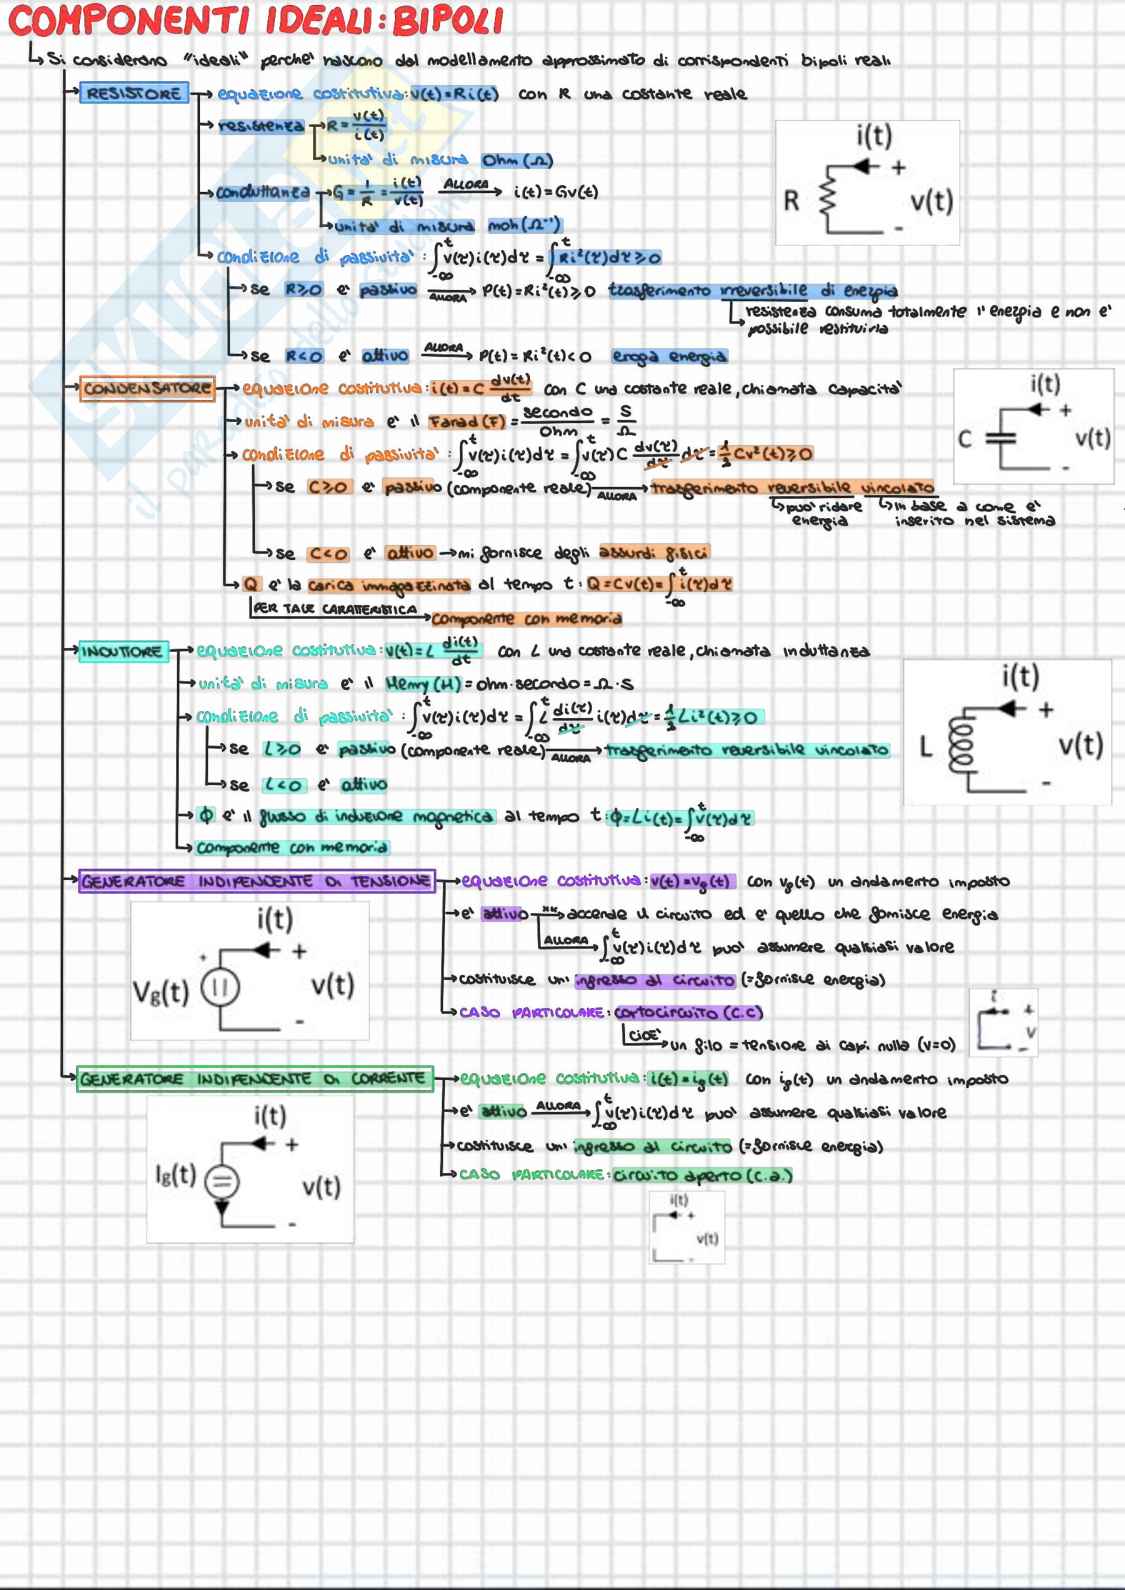 COMPONENTI IDEALI: BIPOLI
↳ Si considerano "ideali" perche' nascono dal modellamento approssimato di corrispondenti bipoli reali
RESISTORE → equazione costitutiva: v(t)=Ri(t) con R una costante reale
→ resistenza → R = v(t)/i(t)
→ unita' di misura Ohm (Ω)
→ conduttanza → G = 1/R = i(t)/v(t) ALLORA → i(t)=Gv(t)
→ unita' di misura moh (Ω⁻¹)
→ condizione di passivita': ∫_{-∞}^{t} v(τ)i(τ)dτ = ∫_{-∞}^{t} Ri²(τ)dτ ≥ 0
→ se R≥0 e' passivo ALLORA → P(t)=Ri²(t)≥0 trasferimento irreversibile di energia
↳ resistenza consuma totalmente l'energia e non e' possibile restituirla
→ se R<0 e' attivo ALLORA → P(t)=Ri²(t)<0 eroga energia
i(t)
+
R
v(t)
-
CONDENSATORE → equazione costitutiva: i(t)=C dv(t)/dt con C una costante reale, chiamata capacita'
→ unita' di misura e' il Farad (F) = secondo/Ohm = S/Ω
→ condizione di passivita': ∫_{-∞}^{t} v(τ)i(τ)dτ = ∫_{-∞}^{t} v(τ) C dv(τ)/dτ dτ = 1/2 Cv²(t) ≥ 0
→ se C≥0 e' passivo (componente reale) ALLORA → trasferimento reversibile vincolato
↳ puo' ridare energia
↳ in base a come e' inserito nel sistema
→ se C<0 e' attivo → mi fornisce degli assurdi fisici
→ Q e' la carica immagazzinata al tempo t: Q=Cv(t)=∫_{-∞}^{t} i(τ)dτ
PER TALE CARATTERISTICA → componente con memoria
i(t)
+
C
v(t)
-
INDUTTORE → equazione costitutiva: v(t)=L di(t)/dt con L una costante reale, chiamata induttanza
→ unita' di misura e' il Henry (H) = ohm·secondo = Ω·S
→ condizione di passivita': ∫_{-∞}^{t} v(τ)i(τ)dτ = ∫_{-∞}^{t} L di(τ)/dτ i(τ)dτ = 1/2 Li²(t) ≥ 0
→ se L≥0 e' passivo (componente reale) ALLORA → trasferimento reversibile vincolato
→ se L<0 e' attivo
→ Φ e' il flusso di induzione magnetica al tempo t: Φ=Li(t)=∫_{-∞}^{t} v(τ)dτ
→ componente con memoria
i(t)
+
L
v(t)
-
GENERATORE INDIPENDENTE DI TENSIONE → equazione costitutiva: v(t)=vg(t) con vg(t) un andamento imposto
→ e' attivo → accende il circuito ed e' quello che fornisce energia
ALLORA → ∫_{-∞}^{t} v(τ)i(τ)dτ puo' assumere qualsiasi valore
→ costituisce un' ingresso al circuito (=fornisce energia)
→ CASO PARTICOLARE: cortocircuito (C.C)
CIOE' → un filo = tensione ai capi nulla (v=0)
i(t)
+
+
Vg(t)
v(t)
-
i
+
v
-
GENERATORE INDIPENDENTE DI CORRENTE → equazione costitutiva: i(t)=ig(t) con ig(t) un andamento imposto
→ e' attivo ALLORA → ∫_{-∞}^{t} v(τ)i(τ)dτ puo' assumere qualsiasi valore
→ costituisce un' ingresso al circuito (=fornisce energia)
→ CASO PARTICOLARE: circuito aperto (c.a.)
i(t)
+
Ig(t)
v(t)
-
i(t)
+
v(t)
-